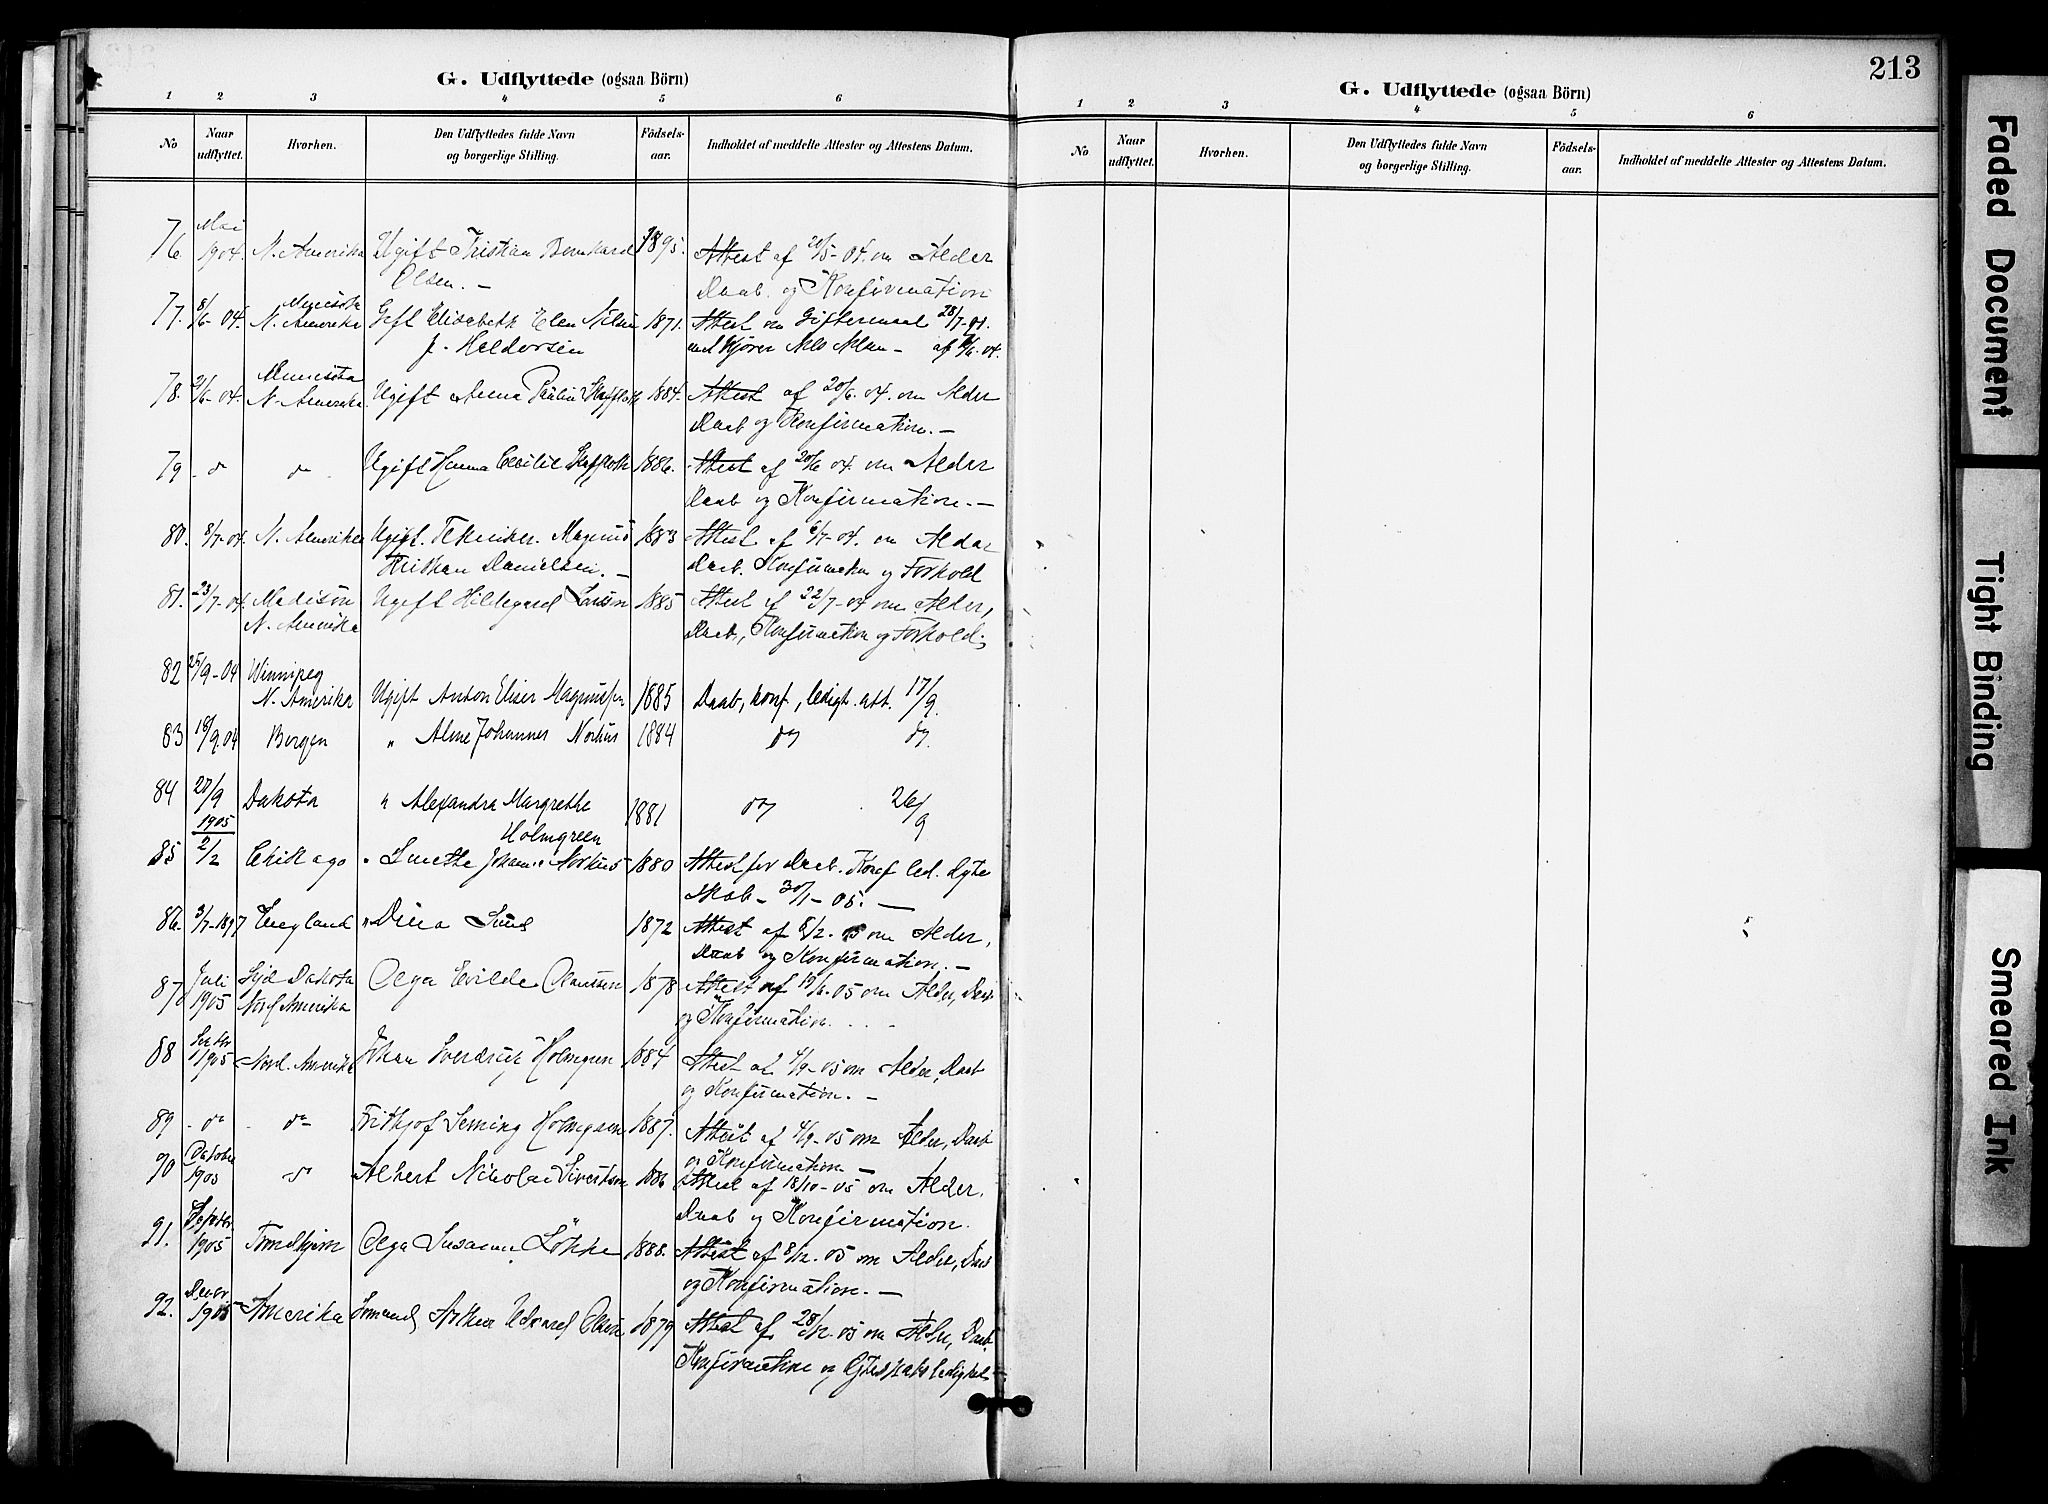 G. Udflyttede (ogsaa Börn)
1 2 3 4 5 6
No Naar udflyttet. Hvorhen. Den Udflyttedes fulde Navn og borgerlige Stilling. Födsels-aar. Indholdet af meddelte Attester og Attestens Datum.
76. Mai 1904. N. Amerika Ugift Kristian Bernhard 1895. Attest af 20/5-04. om Alder
Olsen. — Daab. og Konfirmation
77. 8/6-04. Minesota N. Amerika Gift Elisabeth Elen Nilsen 1871. Attest om Giftermaal 28/7-01.
f. Haldorsen med Kjører Nils Nilsen — af 6/6.04.
78. 2/6-04. Minesota N. Amerika. Ugift Anna Paulin 1884. Attest af 20/6.04. om Alder
Daab og Konfirmation. —
79. do do Ugift Hanna Cecilie 1886. Attest af 20/6 04. om Alder
Daab og Konfirmation. —
80. 8/7-04. N. Amerika Ugift. Tekniker. Magnus 1883 Attest af 6/7-04. om Alder
Kristian Danielsen. — Daab. Konfirmation og Forhold
81. 23/7-04. Madison Ugift Hildegard Larsen 1885 Attest af 22/7-04 om Alder,
N. Amerika Daab, Konfirmation og Forhold.
82 25/9-04 Winnipeg
N. Amerika Ugift Anton Eliser Magnussen 1885 Daab, konf, ledigt. att. 17/9.
83 18/9.04 Bergen " Alme Johannes Norhus 1884 do do.
84 27/9 Dakota " Alexandra Margrethe 1881 do 26/9
Holmgreen
1905
85 2/2 Chikago " Johanne Norhus 1880 Attest for Daab. Konf led. Ægte
skab - 30/1-05. —
86. 3/7-1897 England " Dina Sund 1872 Attest af 8/2.05 om Alder,
Daab og Konfirmation. —
87 Juli 1905 Syd Dakota Olga 1878 Attest af 19/6.05 om Alder, Daab
Nord Amerika og Konfirmation.
88 Septbr 1905 Nord. Amerika Johan Sverdrup Holmgren 1884 Attest af 4/9-05 om Alder, Daab
og Konfirmation. —
89 do do Frithjof Holmgren 1887. Attest af 4/9-05 om Alder, Daab
og Konfirmation —
90 Oktober 1905 do Albert Nikolai Sivertsen 1886 Attest af 18/10-05 om Alder.
Daab og Konfirmation.
91. Septbr 1905 Trondhjem Olga Susanne Løkke 1888. Attest af 8/12.05 om Alder, Daab
og Konfirmation. —
92. Decbr 1905 Amerika Arthur Edvard Olsen 1879 Attest af 28/12.05 om Alder, Daab.
Konfirmation og Ægteskabsledighed —
213
G. Udflyttede (ogsaa Börn)
1 2 3 4 5 6
No Naar udflyttet. Hvorhen. Den Udflyttedes fulde Navn og borgerlige Stilling. Födsels-aar. Indholdet af meddelte Attester og Attestens Datum.
Faded Document
Tight Binding
Smeared Ink